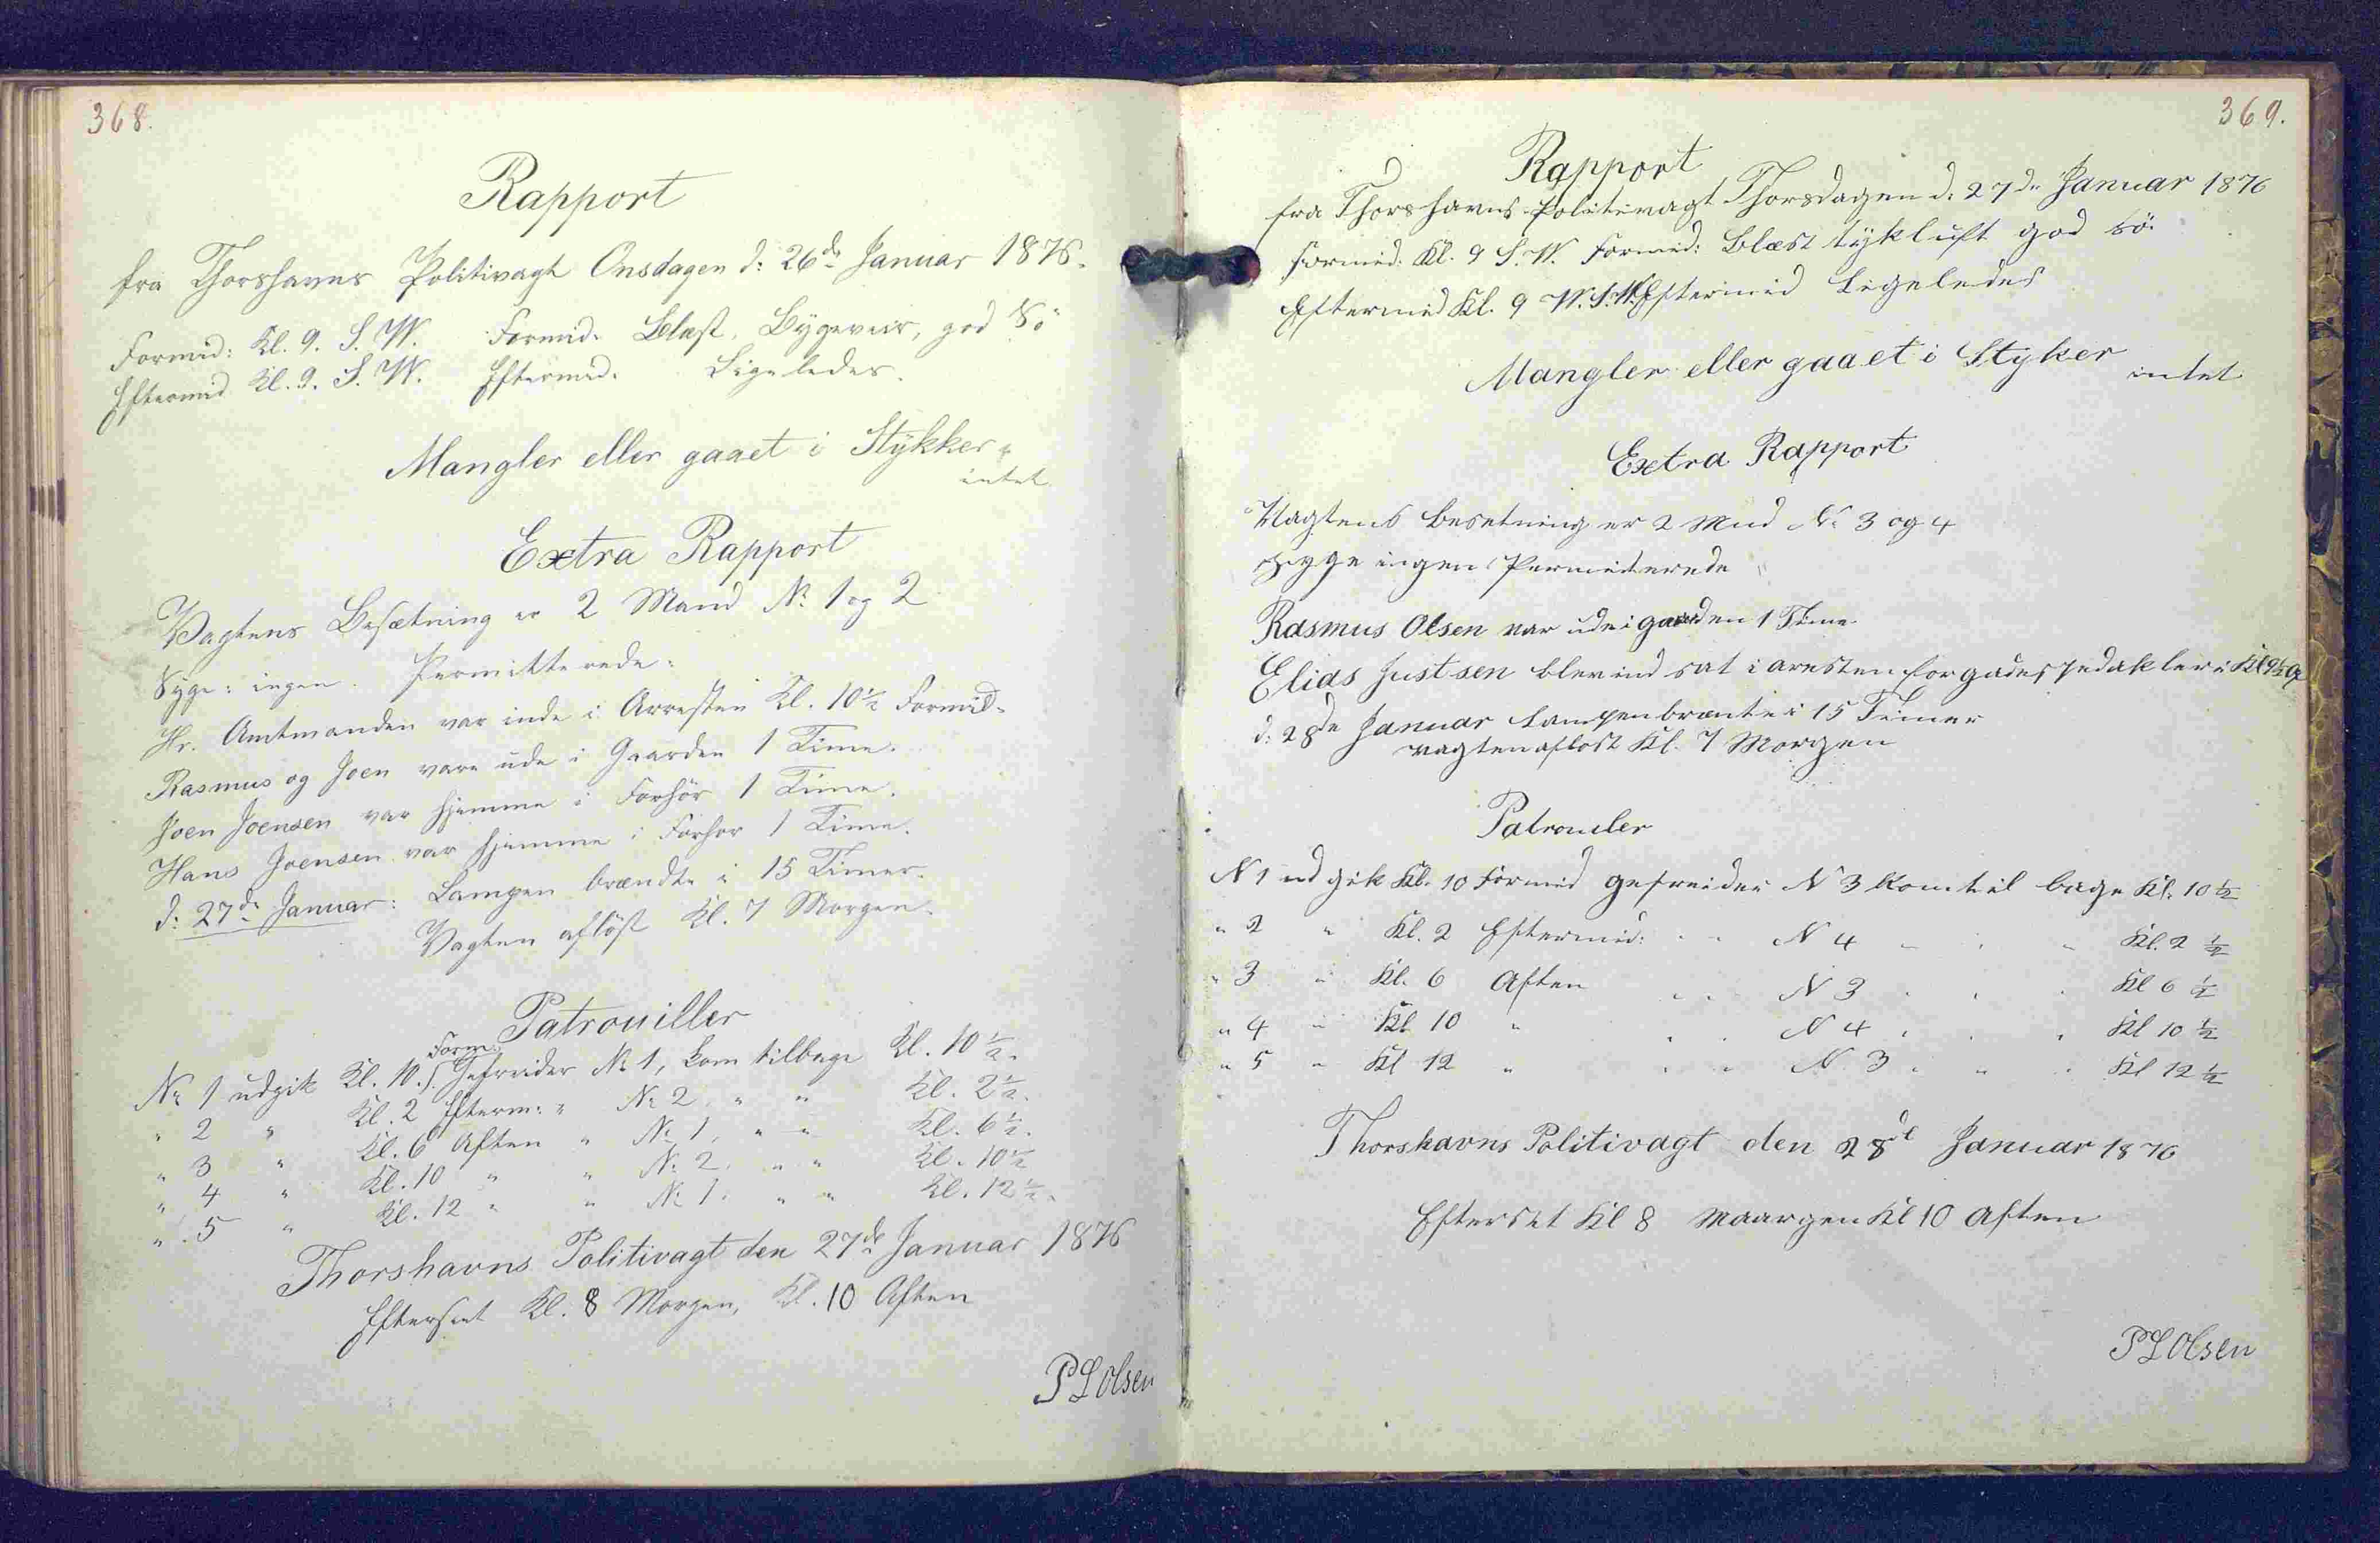 368.
Rapport
fra Thorshavns Politivagt Onsdagen d: 26de Januar 1876.
Formid: Kl. 9. S. W. Formid. Blæst, Bygeveir, god Sö
Eftermid Kl. 9. S. W. Eftermid. Ligeledes.
Mangler eller gaaet i Stykker
intet
Extra Rapport
Vagtens Besætning er 2 Mand No 1 og 2
Syge: ingen. Permitterede:
Hr. Amtmanden var inde i Arresten Kl. 10½ Formid.
Rasmus og Joen vare ude i Gaarden 1 Time.
Joen Joensen var hjemme i Forhör 1 Time.
Hans Joensen var hjemme i Forhör 1 Time.
d: 27de Januar: Lampen brændte i 15 Timer.
Vagten aflöst Kl. 7 Morgen.
Patrouiller
No 1 udgik Kl. 10. Form. Gefreider No 1, kom tilbage Kl. 10½.
" 2 " Kl. 2 Efterm: " No 2. " " Kl. 2½.
" 3 " Kl. 6 Aften " No 1, " " Kl. 6½.
" 4 " Kl. 10 " " No 2. " " Kl. 10½
" 5 " Kl. 12 " " No 1. " " Kl. 12½.
Thorshavns Politivagt den 27de Januar 1876
Efterseet Kl. 8 Morgen, Kl. 10 Aften
P L Olsen
369.
Rapport
fra Thorshavns Politivagt Thorsdagen d: 27de Januar 1876
Formid: Kl. 9 S. W. Formid: Blæst tykluft god sö
Eftermid Kl. 9 W. S. W. Eftermid Ligeledes
Mangler eller gaaet i Styker intet
Extra Rapport
Vagtens besetning er 2 Mnd No 3 og 4
syge ingen Permiterede
Rasmus Olsen var ude i gaarden 1 Time
Elias Justsen blev ind sat i aresten for gadespedakler Kl 9½
d: 28de Januar Lampen brænte i 15 Timer
vagten aflöst Kl. 7 Morgen
Patrouler
N 1 ud gik Kl. 10 Formid gefreider N 3 kom til bage Kl. 10½
" 2 " Kl. 2 Eftermid: " " N 4 " " " Kl. 2½
" 3 " Kl. 6 Aften " " N 3 " " " Kl 6½
" 4 " Kl 10 " " " N 4 " " " Kl 10½
" 5 " Kl 12 " " " N 3 " " " Kl 12½
Thorshavns Politivagt den 28d Januar 1876
Efterset Kl 8 Maargen Kl 10 Aften
P L Olsen